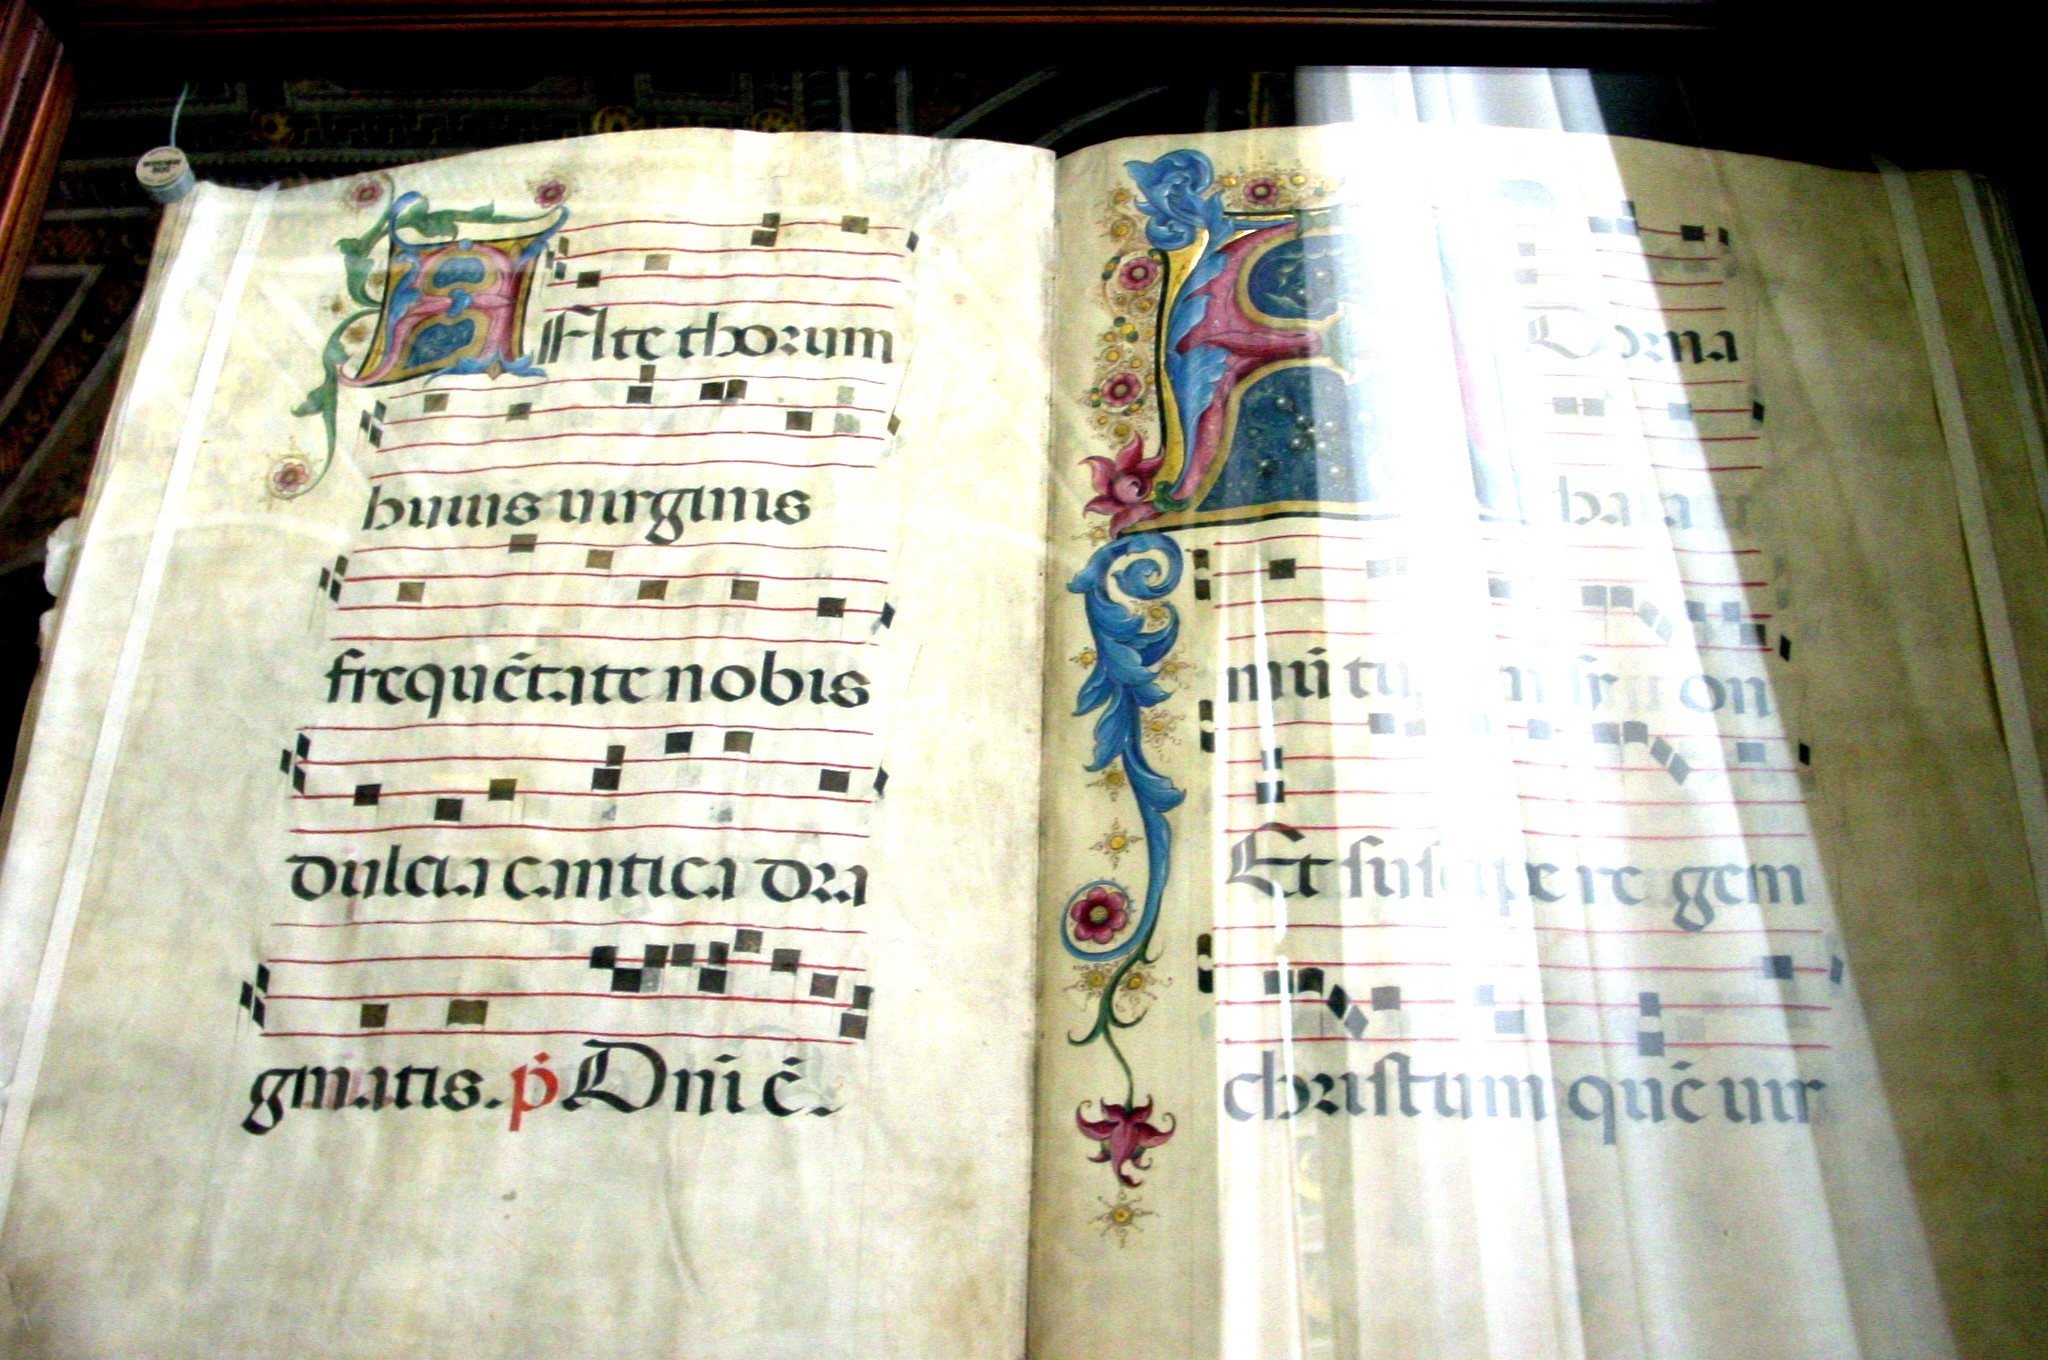 Ante thorum
huius uirginis
frequētate nobis
dulcia cantica dra
gmatis. p̄ Dn̄i ē.
ADorna
thalam
mū tuum sy on
Et suscipe re gem
christum quē uir